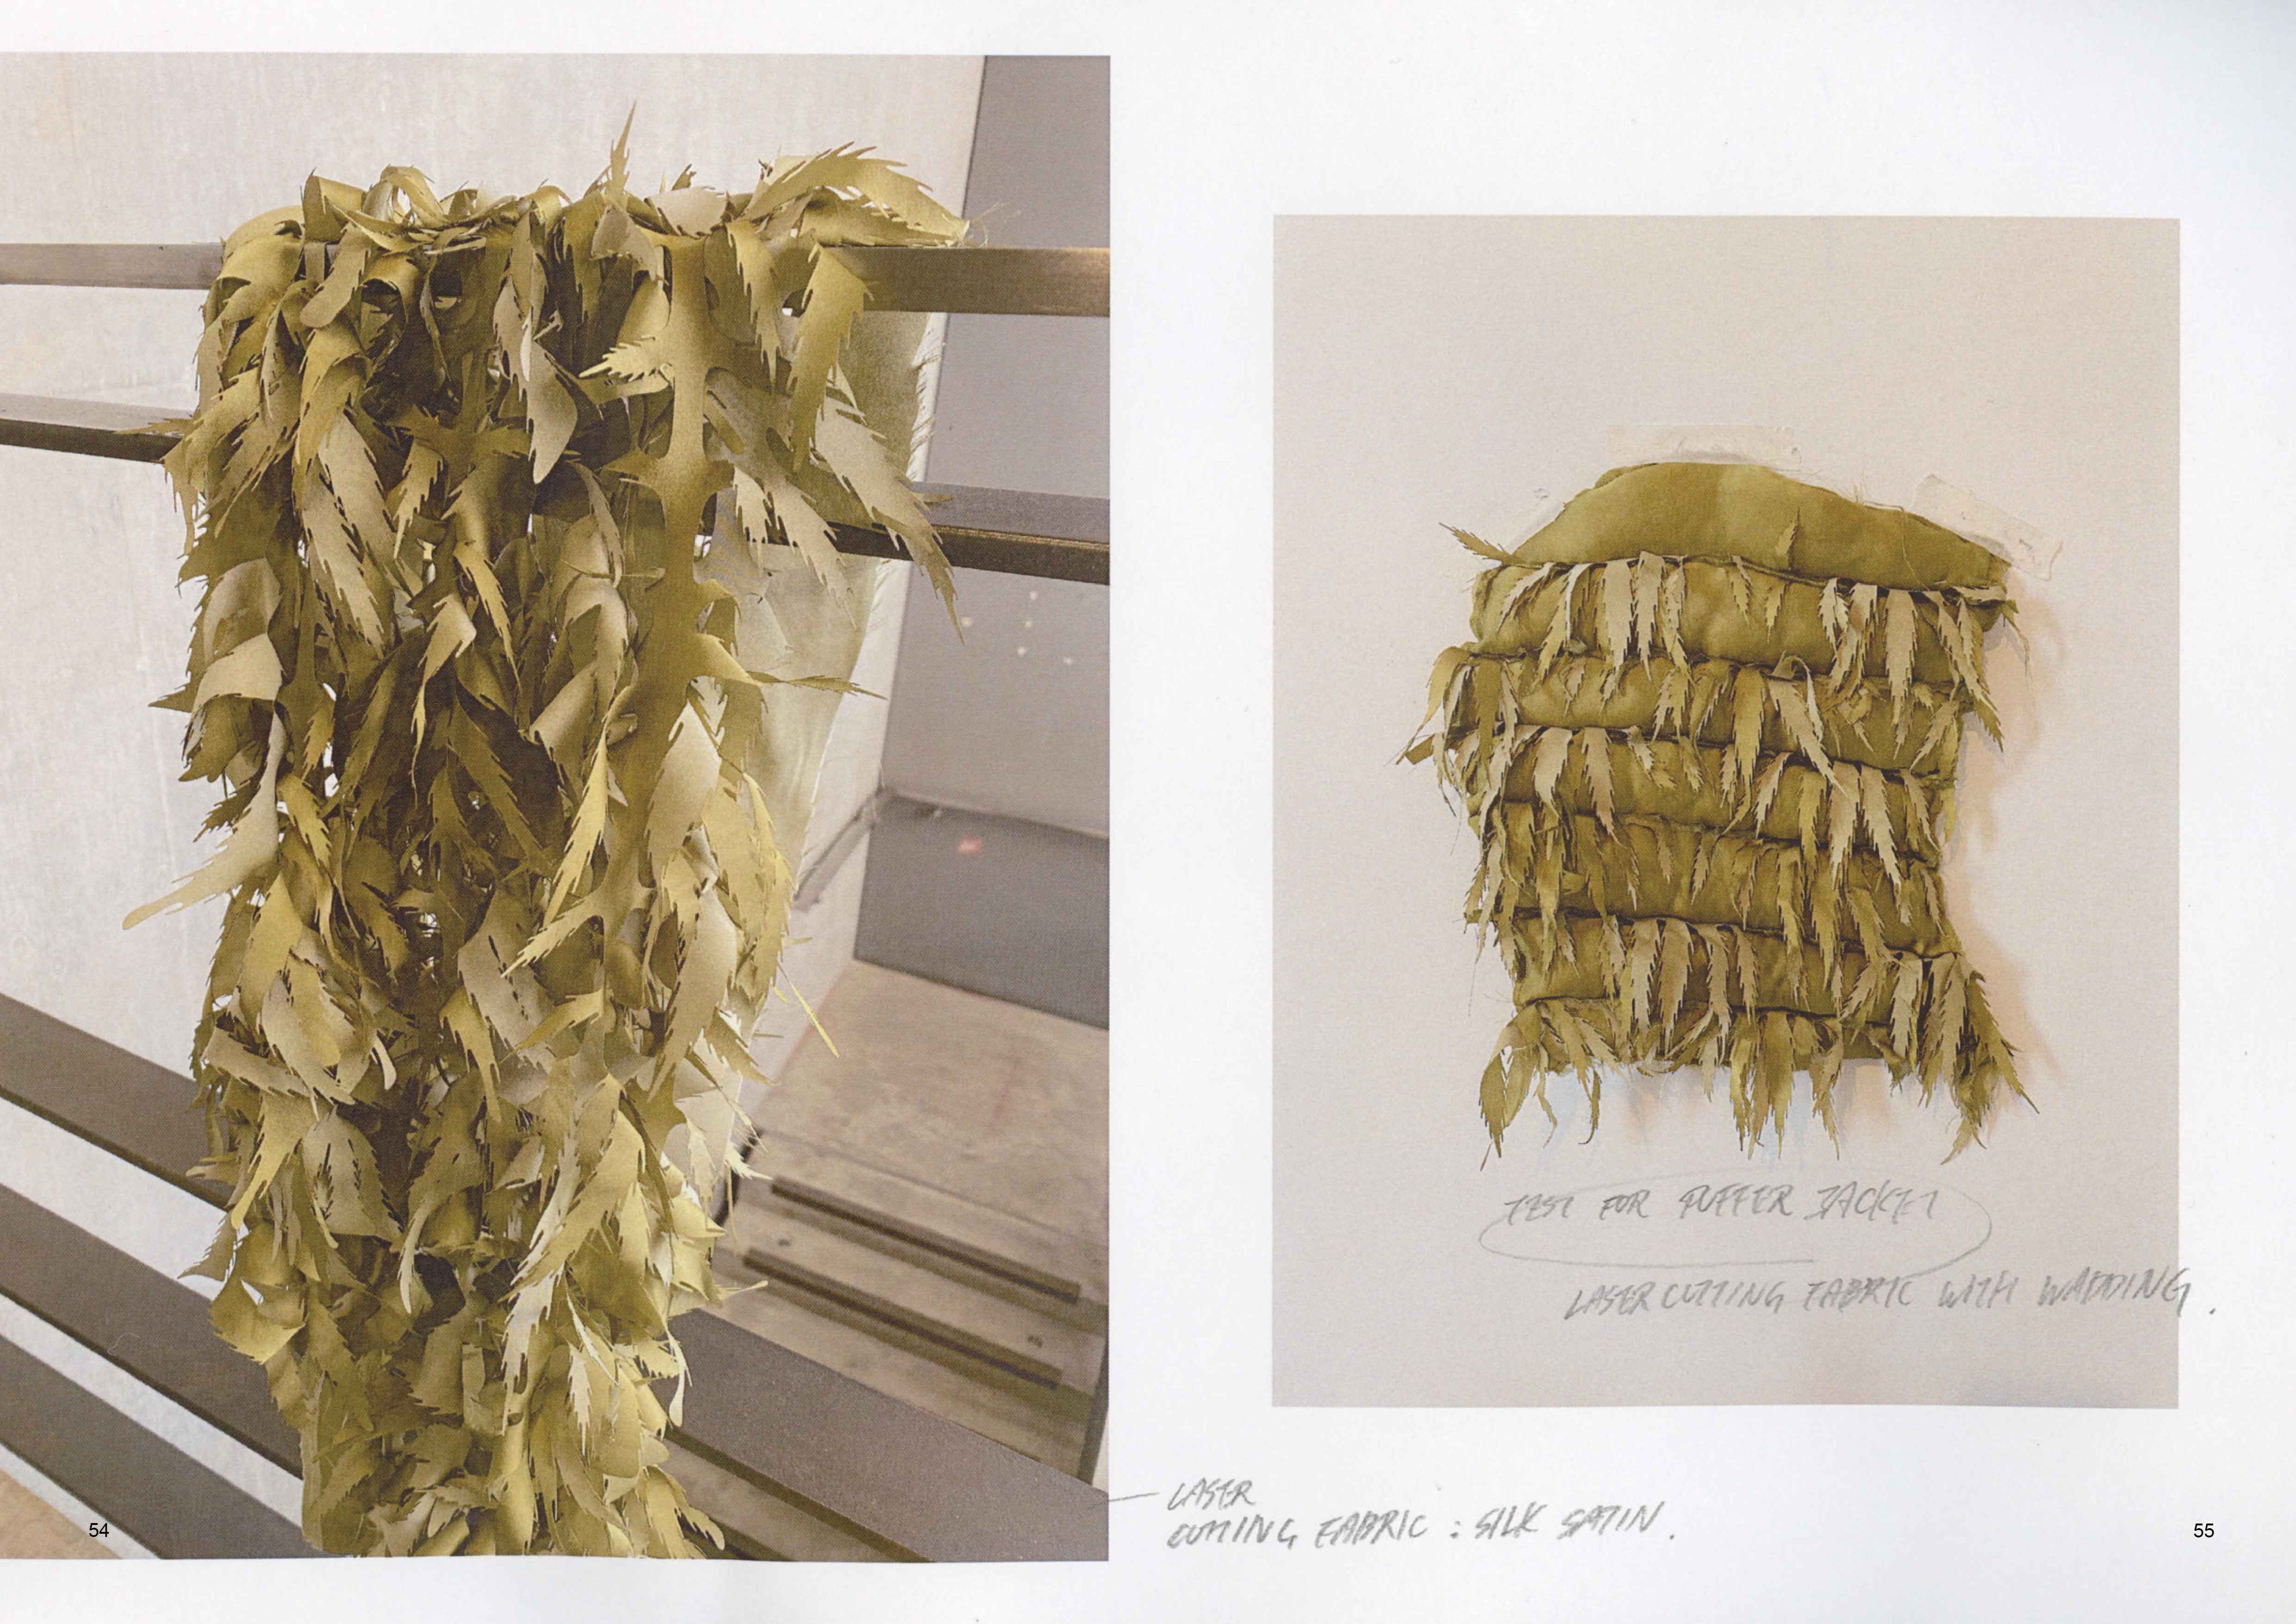 TEST FOR PUFFER JACKET
LASER CUTTING FABRIC WITH WADDING.
LASER
CUTTING FABRIC : SILK SATIN.
54
55